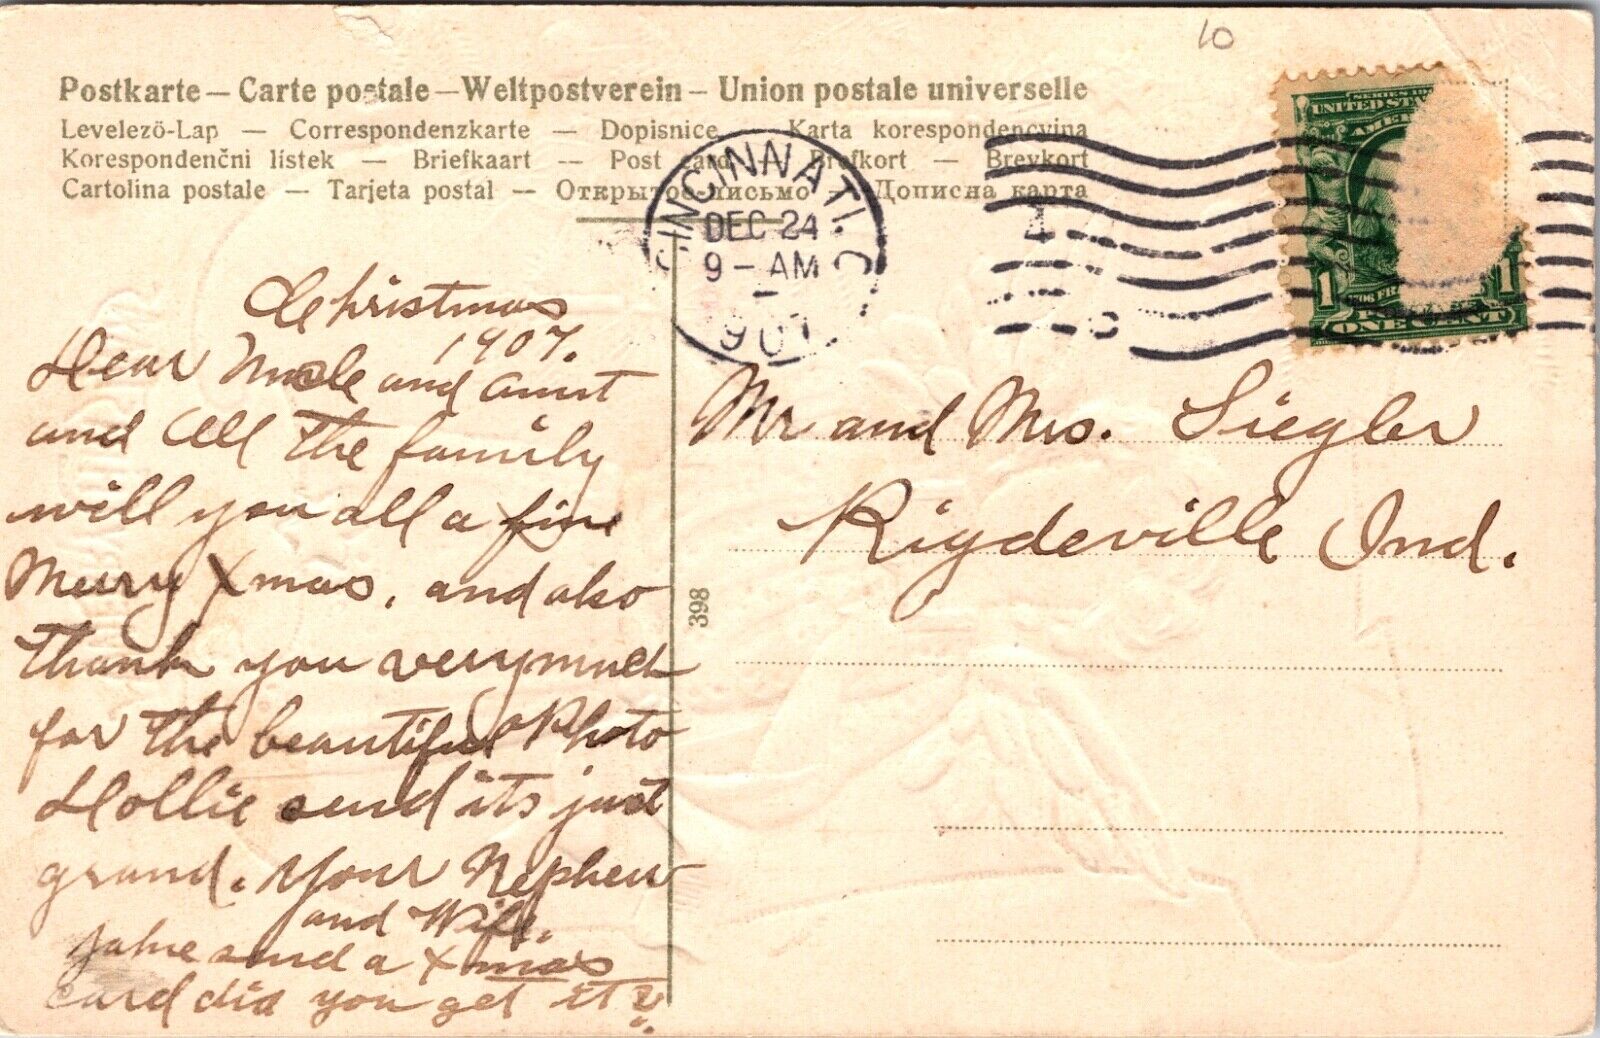 10
Postkarte — Carte postale — Weltpostverein — Union postale universelle
Levelezö-Lap — Correspondenzkarte — Dopisnice — Karta korespondencyjna
Korespondenčni listek — Briefkaart — Post card — Brefkort — Brevkort
Cartolina postale — Tarjeta postal — Открытое письмо — Дописна карта
CINCINNATI, O
DEC 24
9 - AM
1907
UNITED STA
AMER
1 1
ONE CENT
Christmas
1907.
Dear Uncle and Aunt
and all the family
will you all a fine
Merry Xmas, and also
thank you very much
for the beautiful Photo
Hollie send its just
grand. Your Nephew
and Wife.
send a Xmas
card did you get it?
398
Mr and Mrs. Siegler
Rigdeville Ind.